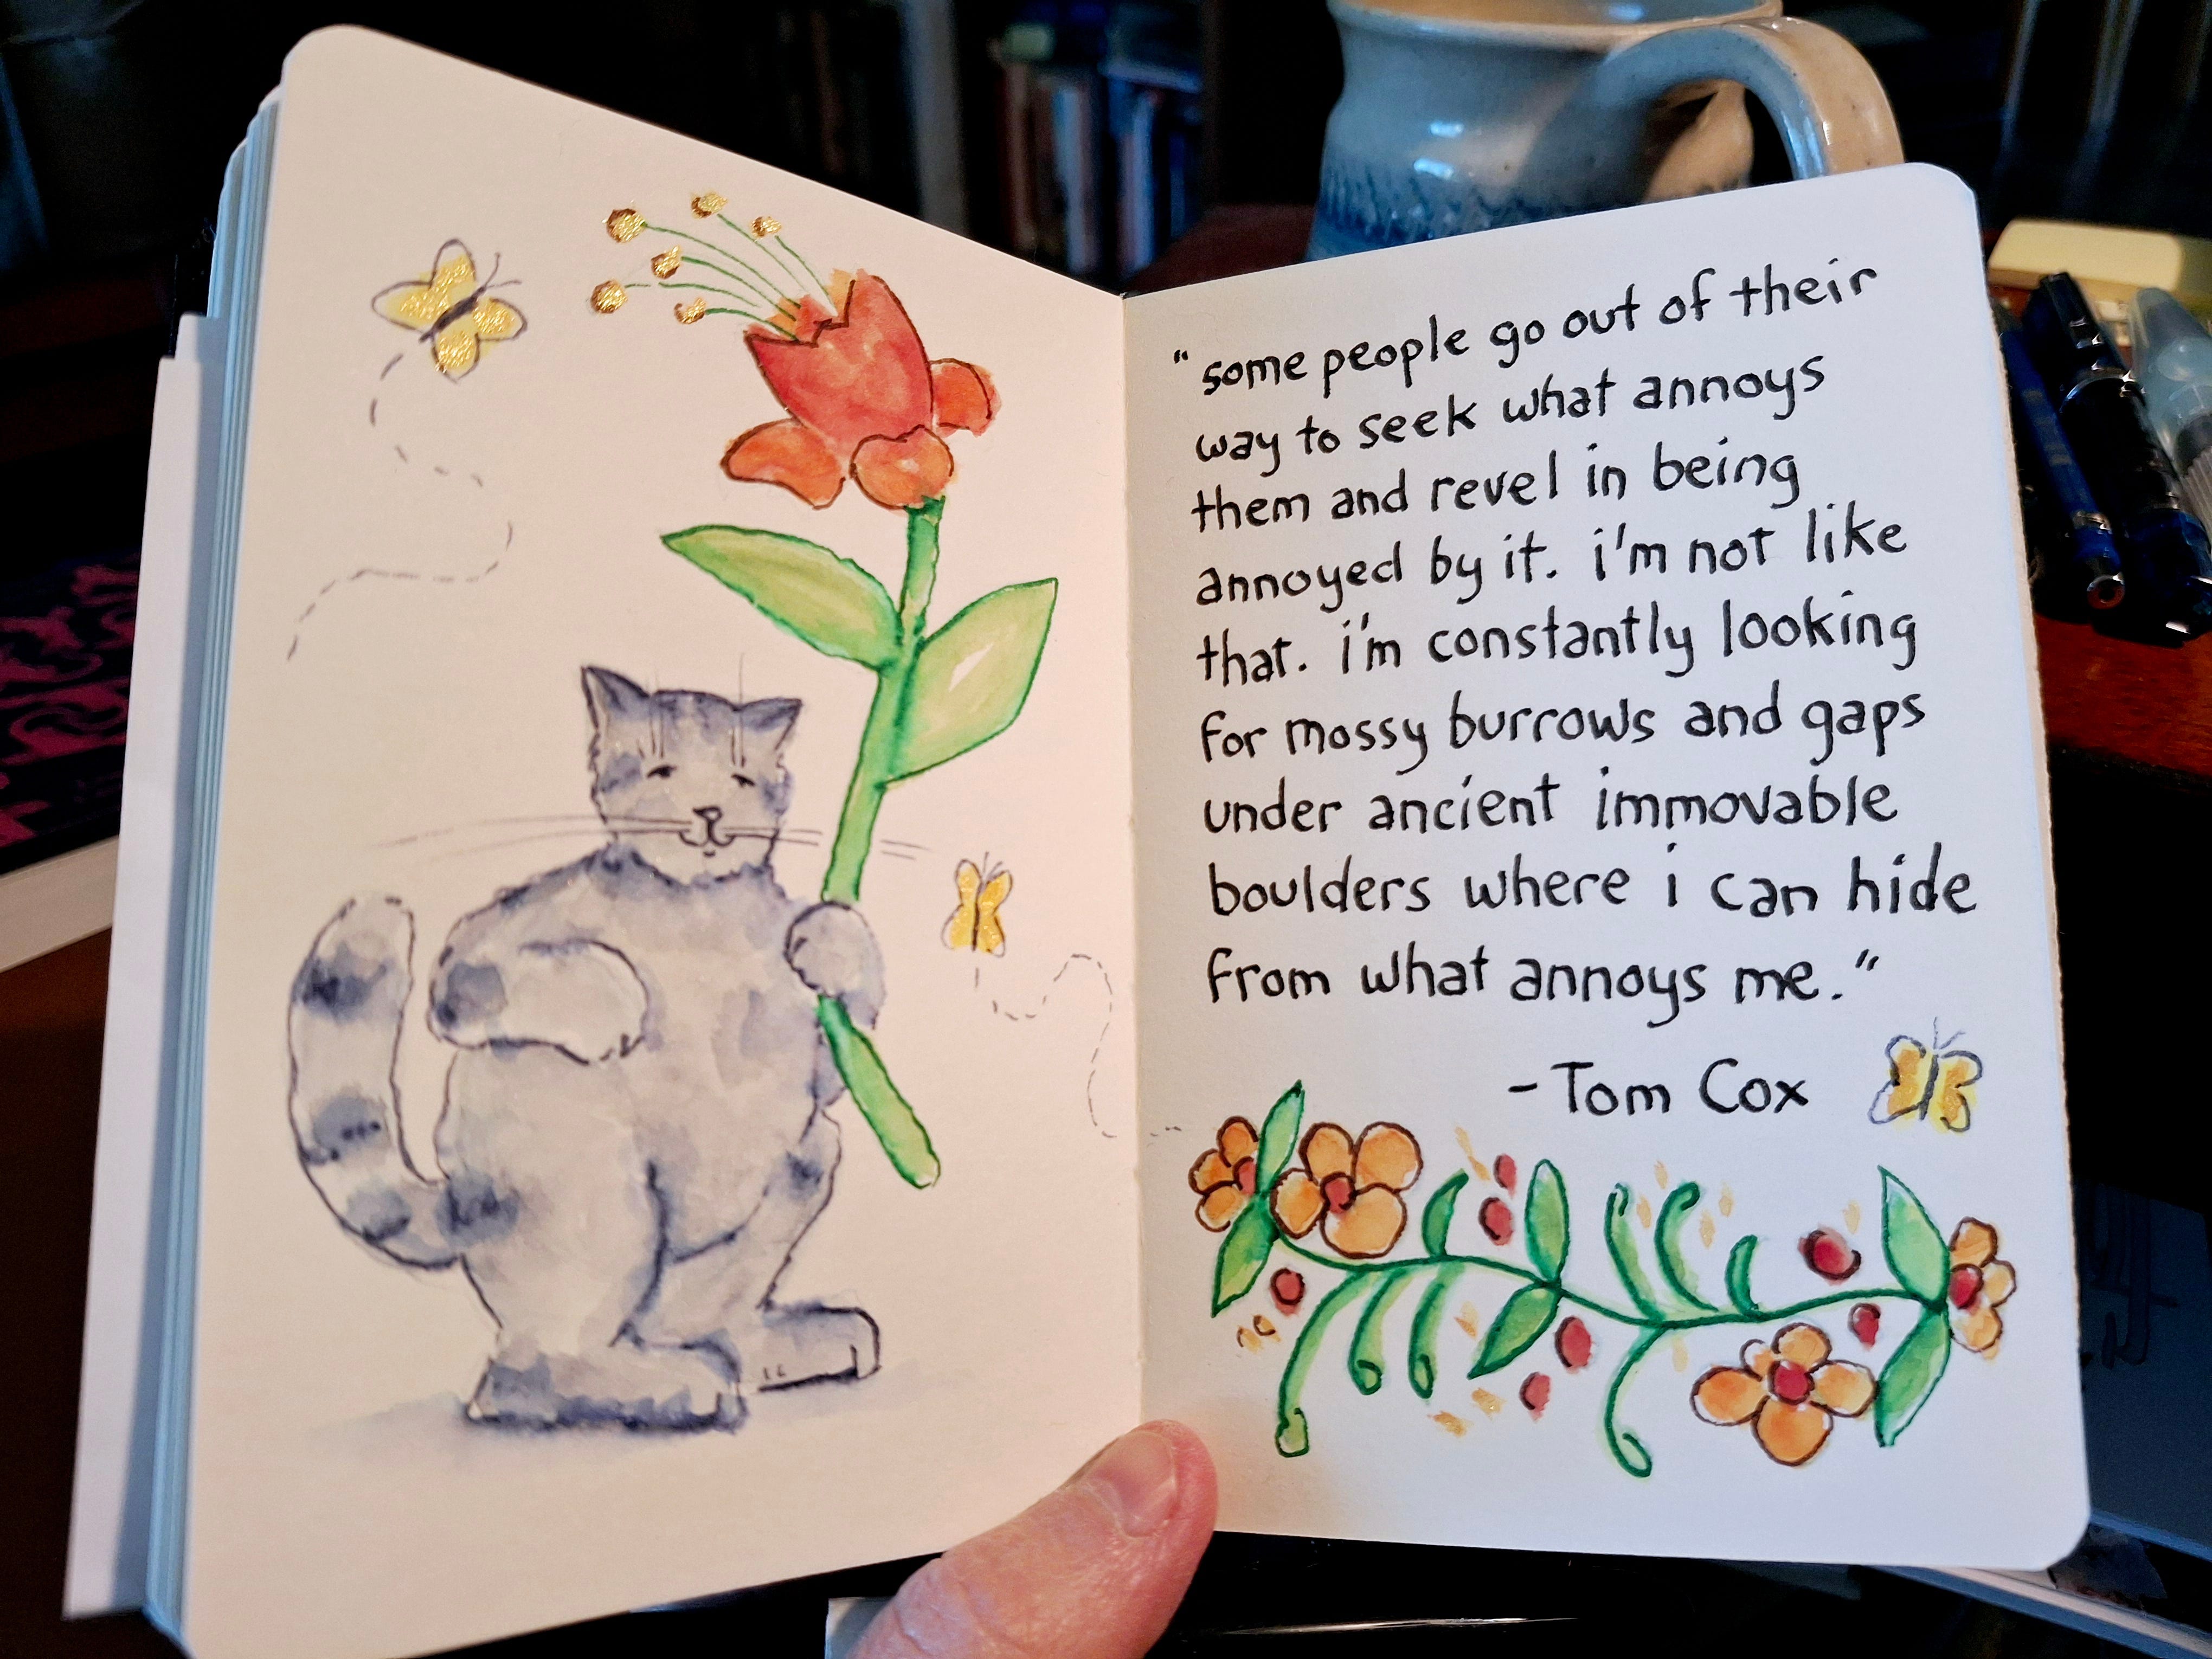 "some people go out of their
way to seek what annoys
them and revel in being
annoyed by it. i'm not like
that. i'm constantly looking
for mossy burrows and gaps
under ancient immovable
boulders where i can hide
from what annoys me."
- Tom Cox